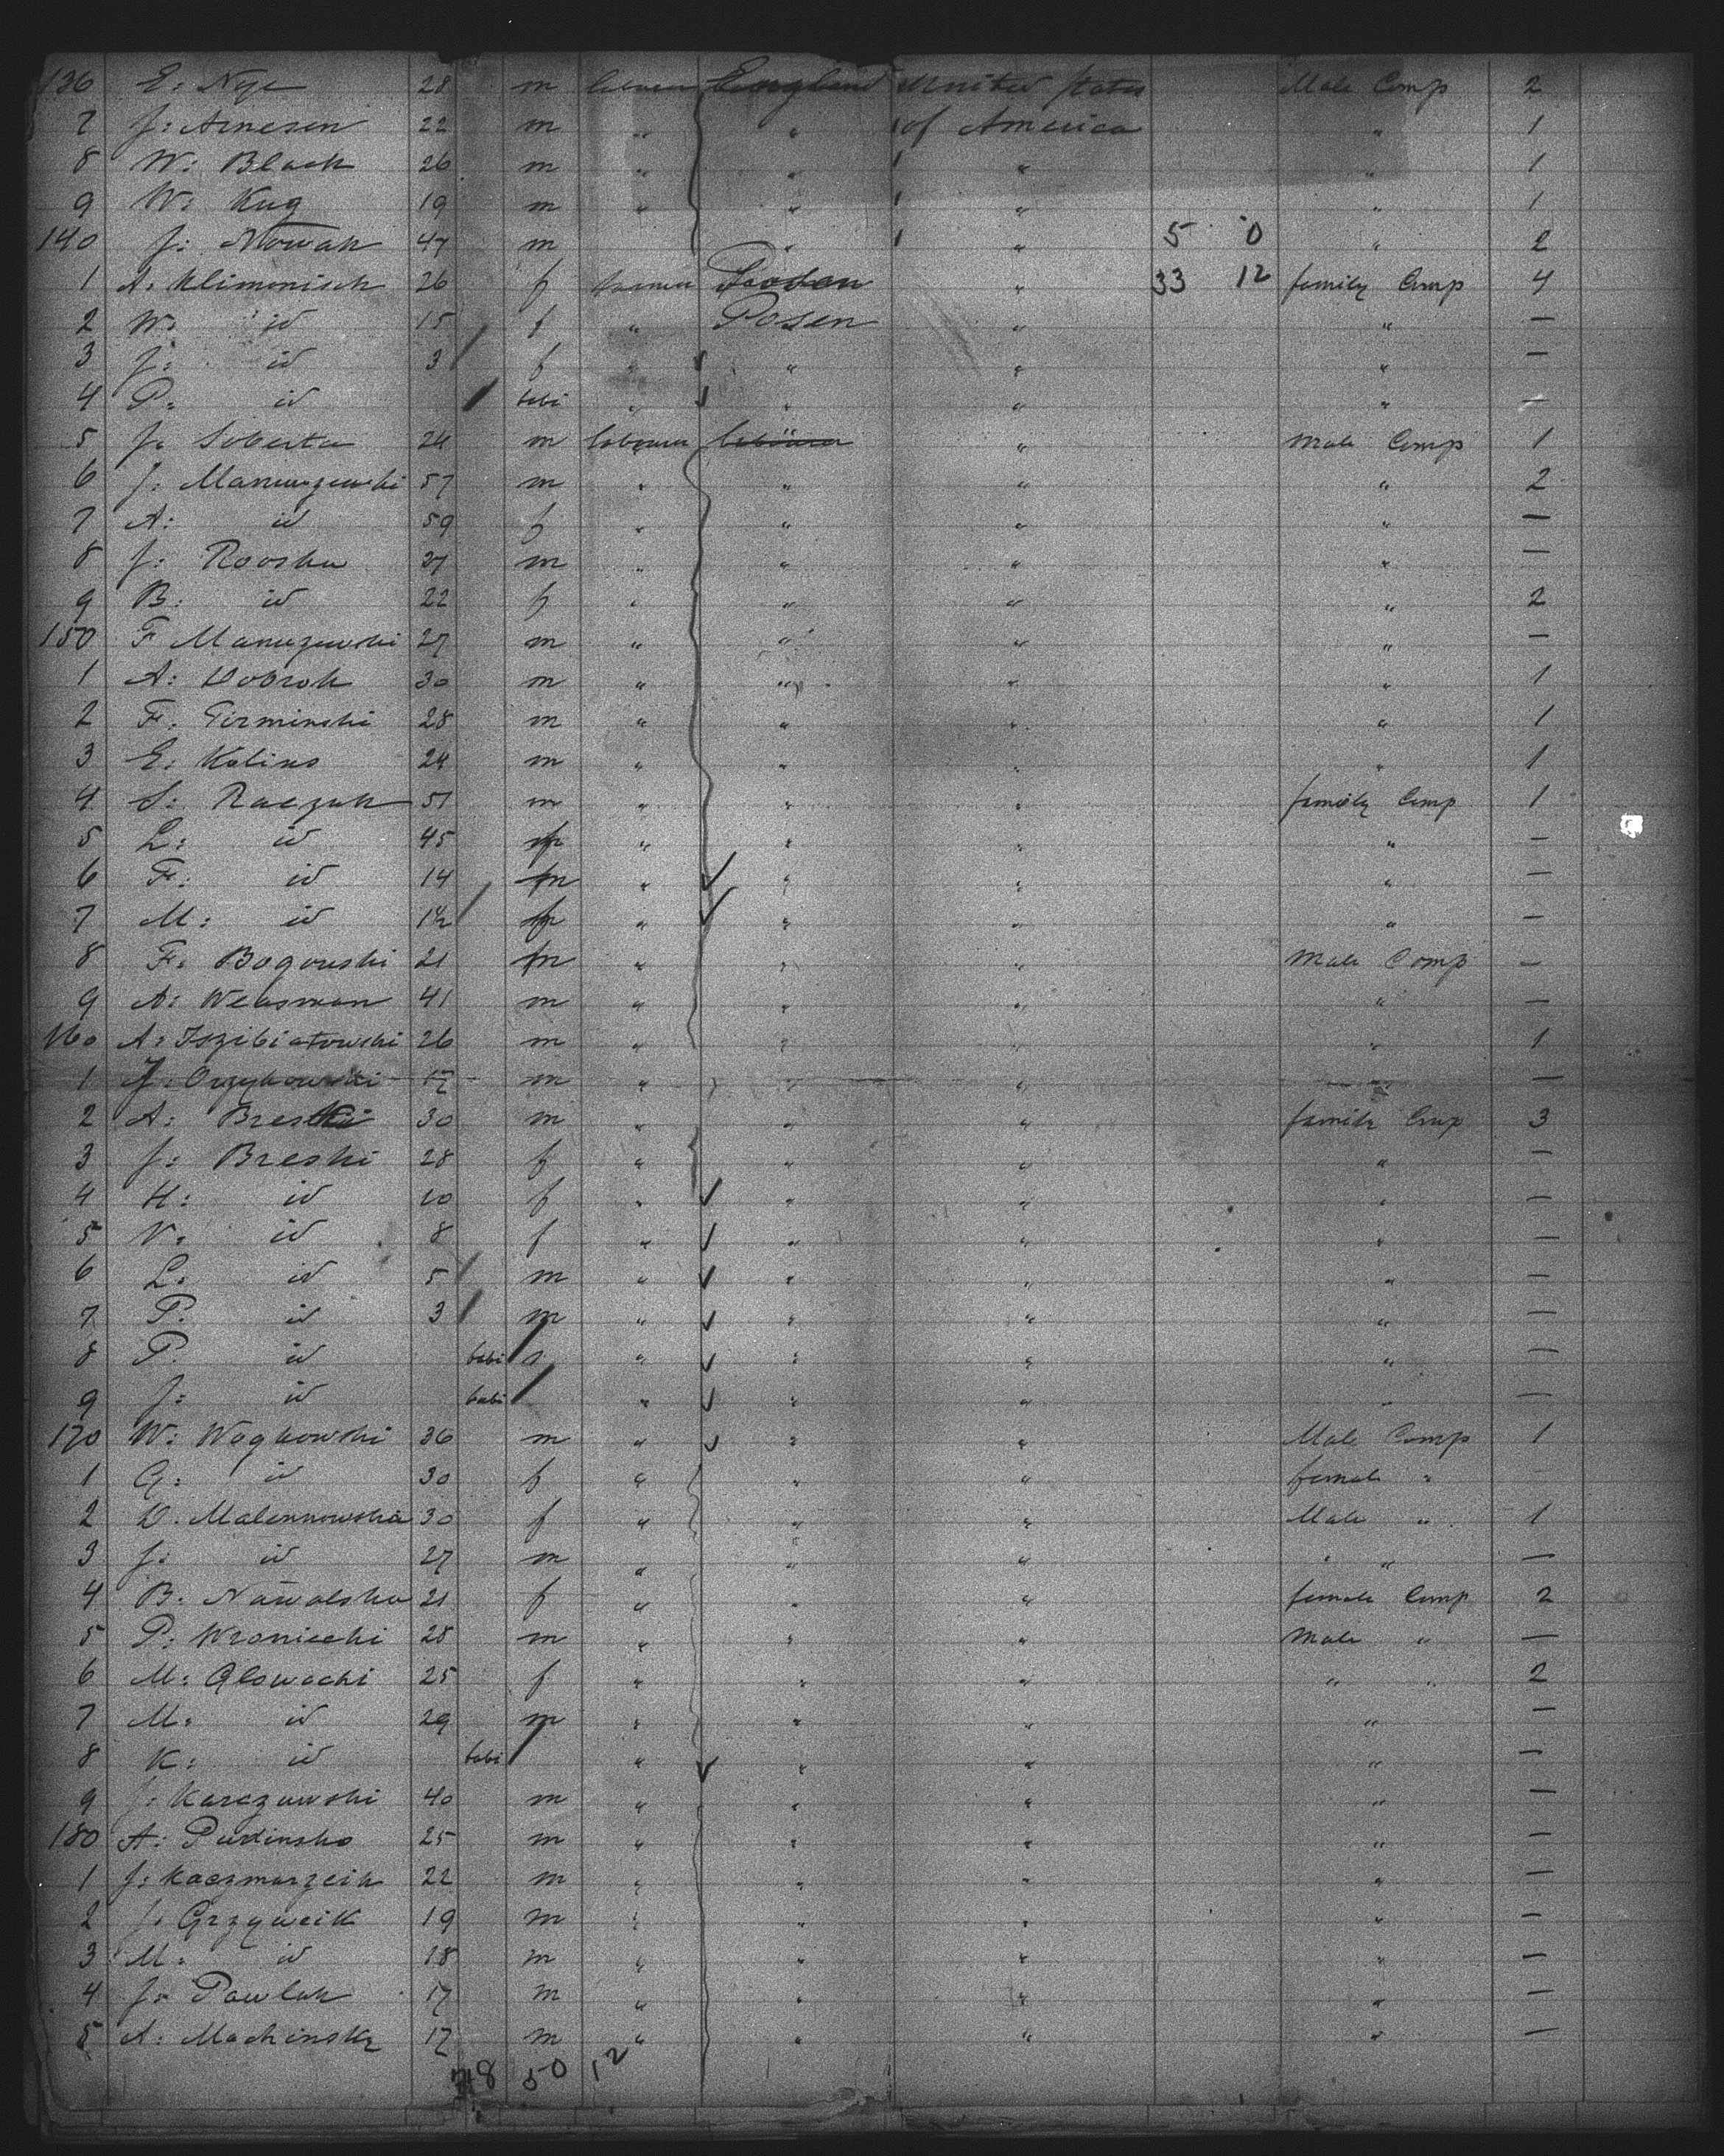 136 E: Nye 28 m England United States Male Comp 2
7 J: Arnesen 22 m " " of America " 1
8 W: Black 26 m " " " " 1
9 W: Kug 19 m " " " " 1
140 J: Nowak 47 m " " 5 0 " 2
1 A: Klimonisch 26 f Posen " 33 12 family Comp 4
2 W: id 15 f " Posen " " —
3 J: id 3 f " " " " —
4 P: id babi " " " " —
5 J: 24 m labourer " Male Comp 1
6 J: 57 m " " " " 2
7 A: id 59 f " " " " —
8 J: Rooska m " " " " —
9 B: id 22 f " " " " 2
150 F 27 m " " " " —
1 A: Dobrok 30 m " " " " 1
2 F: 28 m " " " " 1
3 E: Kolins 24 m " " " " 1
4 S: Raczak 51 m " " " family Comp 1
5 L: id 45 " " " " —
6 F: id 14 m " " " " —
7 M: id " " " " —
8 F: Bogowski 21 m " " " Male Comp —
9 A: Weasman 41 m " " " " —
160 A: 26 m " " " " 1
1 J: 17 m " " " " —
2 A: Breski 30 m " " " family Comp 3
3 J: Breski 28 f " " " " —
4 H: id 10 f " " " " —
5 V: id 8 f " " " " —
6 L: id 5 m " " " " —
7 P: id 3 m " " " " —
8 P: id babi " " " " —
9 J: id babi " " " " —
170 W: Wogkowski 36 m " " " Male Comp 1
1 G: id 30 f " " " female "
2 D. 30 f " " " Male " 1
3 J: id 27 m " " " " " —
4 B: 21 f " " " female Comp 2
5 P: Wroniecki 28 m " " " Male " —
6 M: Glowacki 25 f " " " " " 2
7 M: id 29 m " " " " —
8 K: id babi " " " " —
9 J: Karczewski 40 m " " " " —
180 A: Pudinsko 25 m " " " " —
1 J: Kaczmarzeik 22 m " " " " —
2 J: Grzyweik 19 m " " " " —
3 M: id 18 m " " " " —
4 J: Pawlak 17 m " " " " —
5 A: Machinsky 17 m " " " " —
50 12